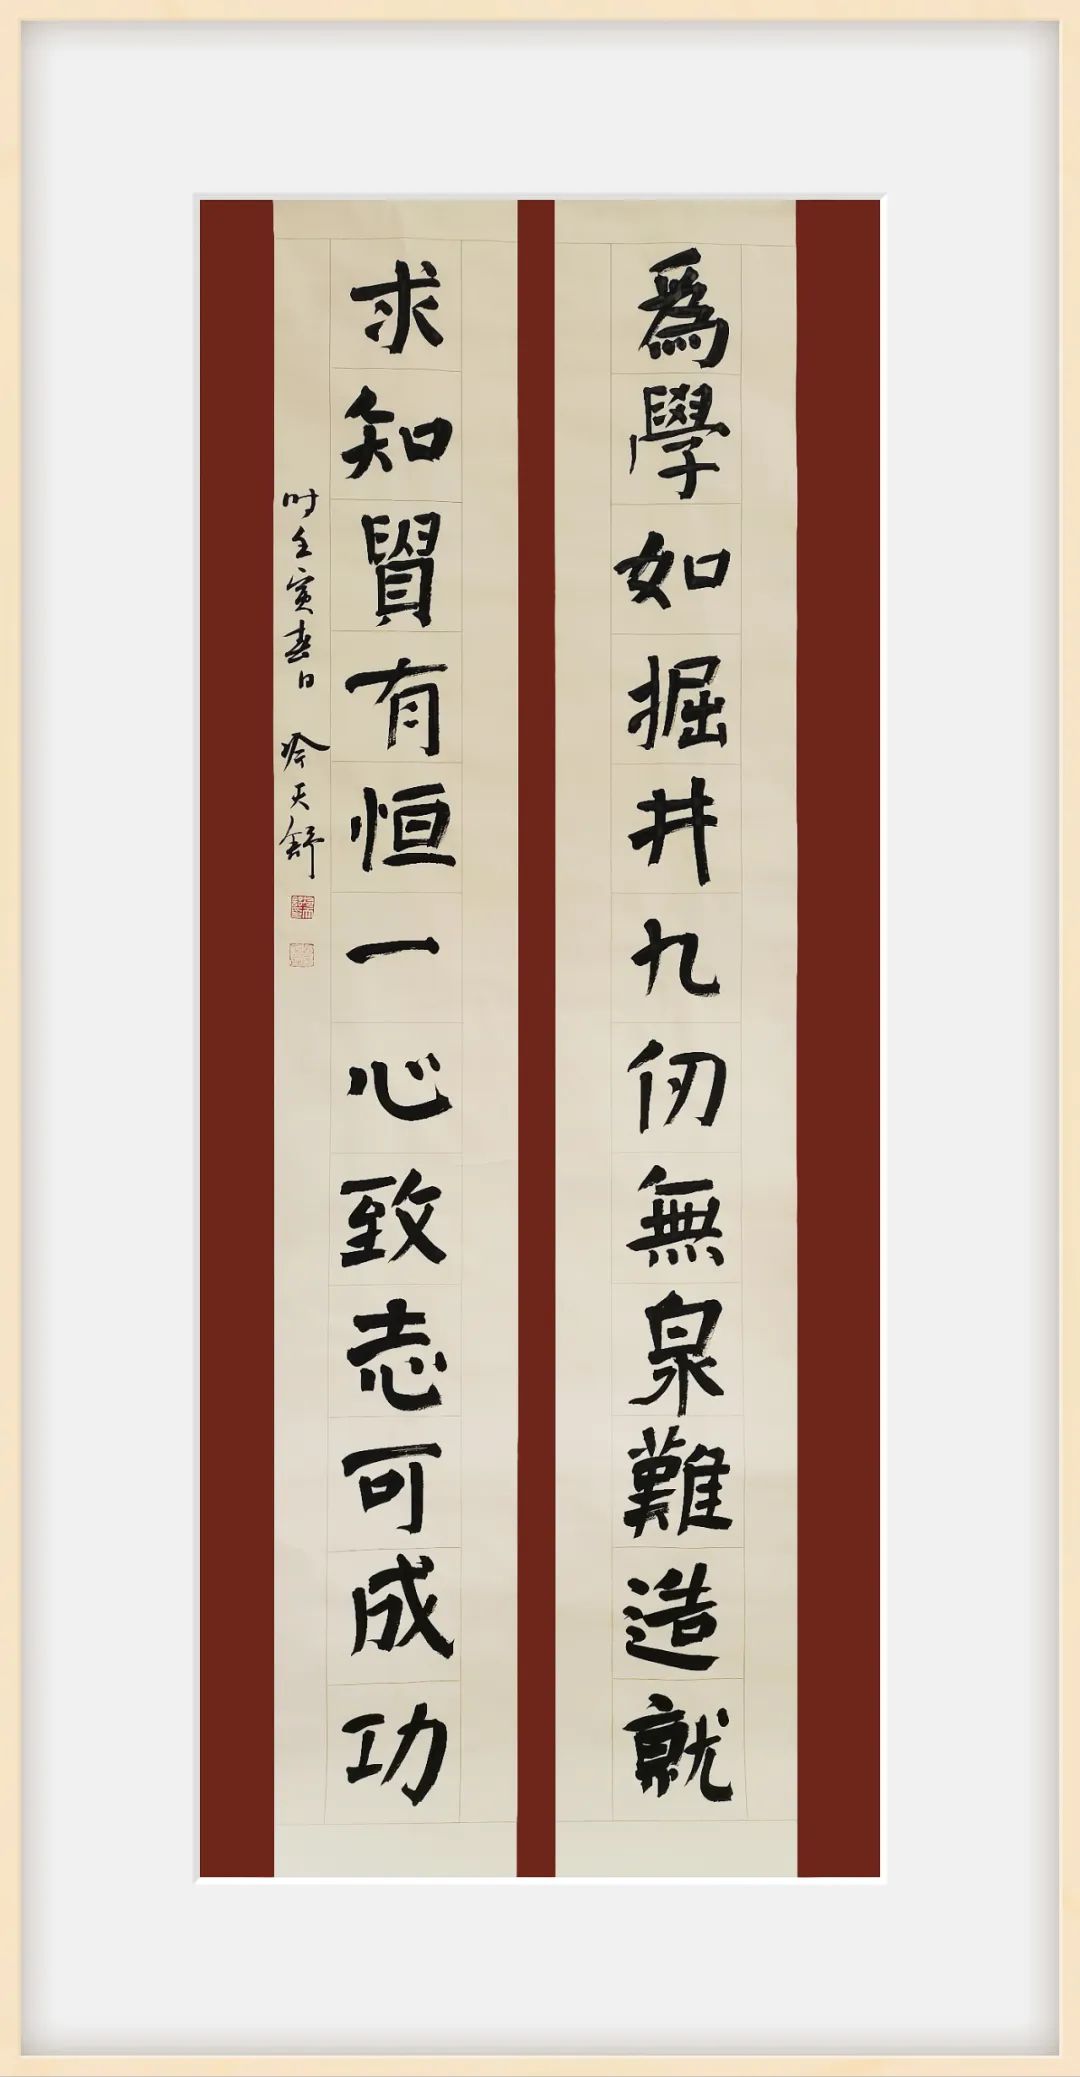 爲學如掘井九仞無泉難造就
求知貴有恒一心致志可成功
时壬寅春日 天舒